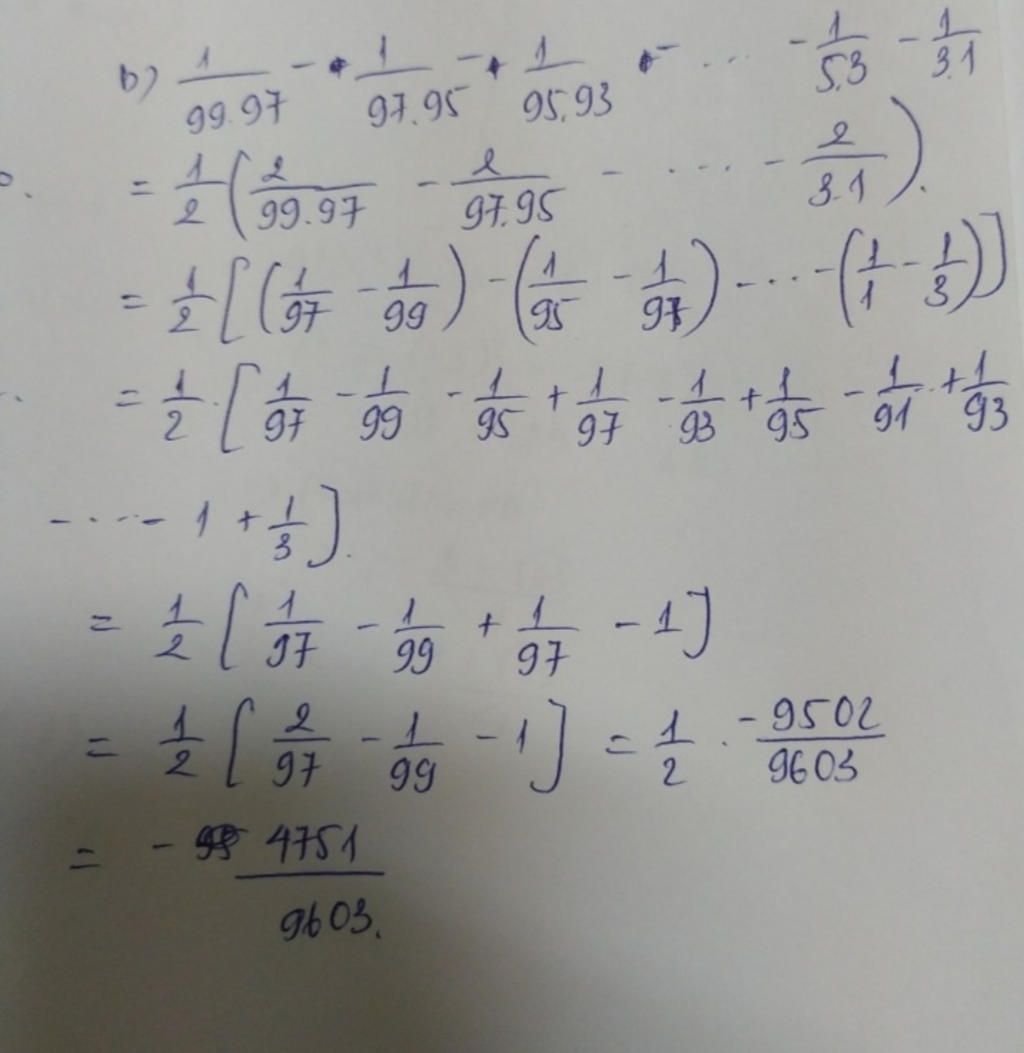 b) 1/99.97 - 1/97.95 - 1/95.93 - ... - 1/5.3 - 1/3.1
= 1/2 (2/99.97 - 2/97.95 - ... - 2/3.1).
= 1/2 [(1/97 - 1/99) - (1/95 - 1/97) - ... - (1/1 - 1/3)]
= 1/2 . [1/97 - 1/99 - 1/95 + 1/97 - 1/93 + 1/95 - 1/91 + 1/93
- ... - 1 + 1/3].
= 1/2 [1/97 - 1/99 + 1/97 - 1]
= 1/2 [2/97 - 1/99 - 1] = 1/2 . -9502/9603
= - 4751/9603.